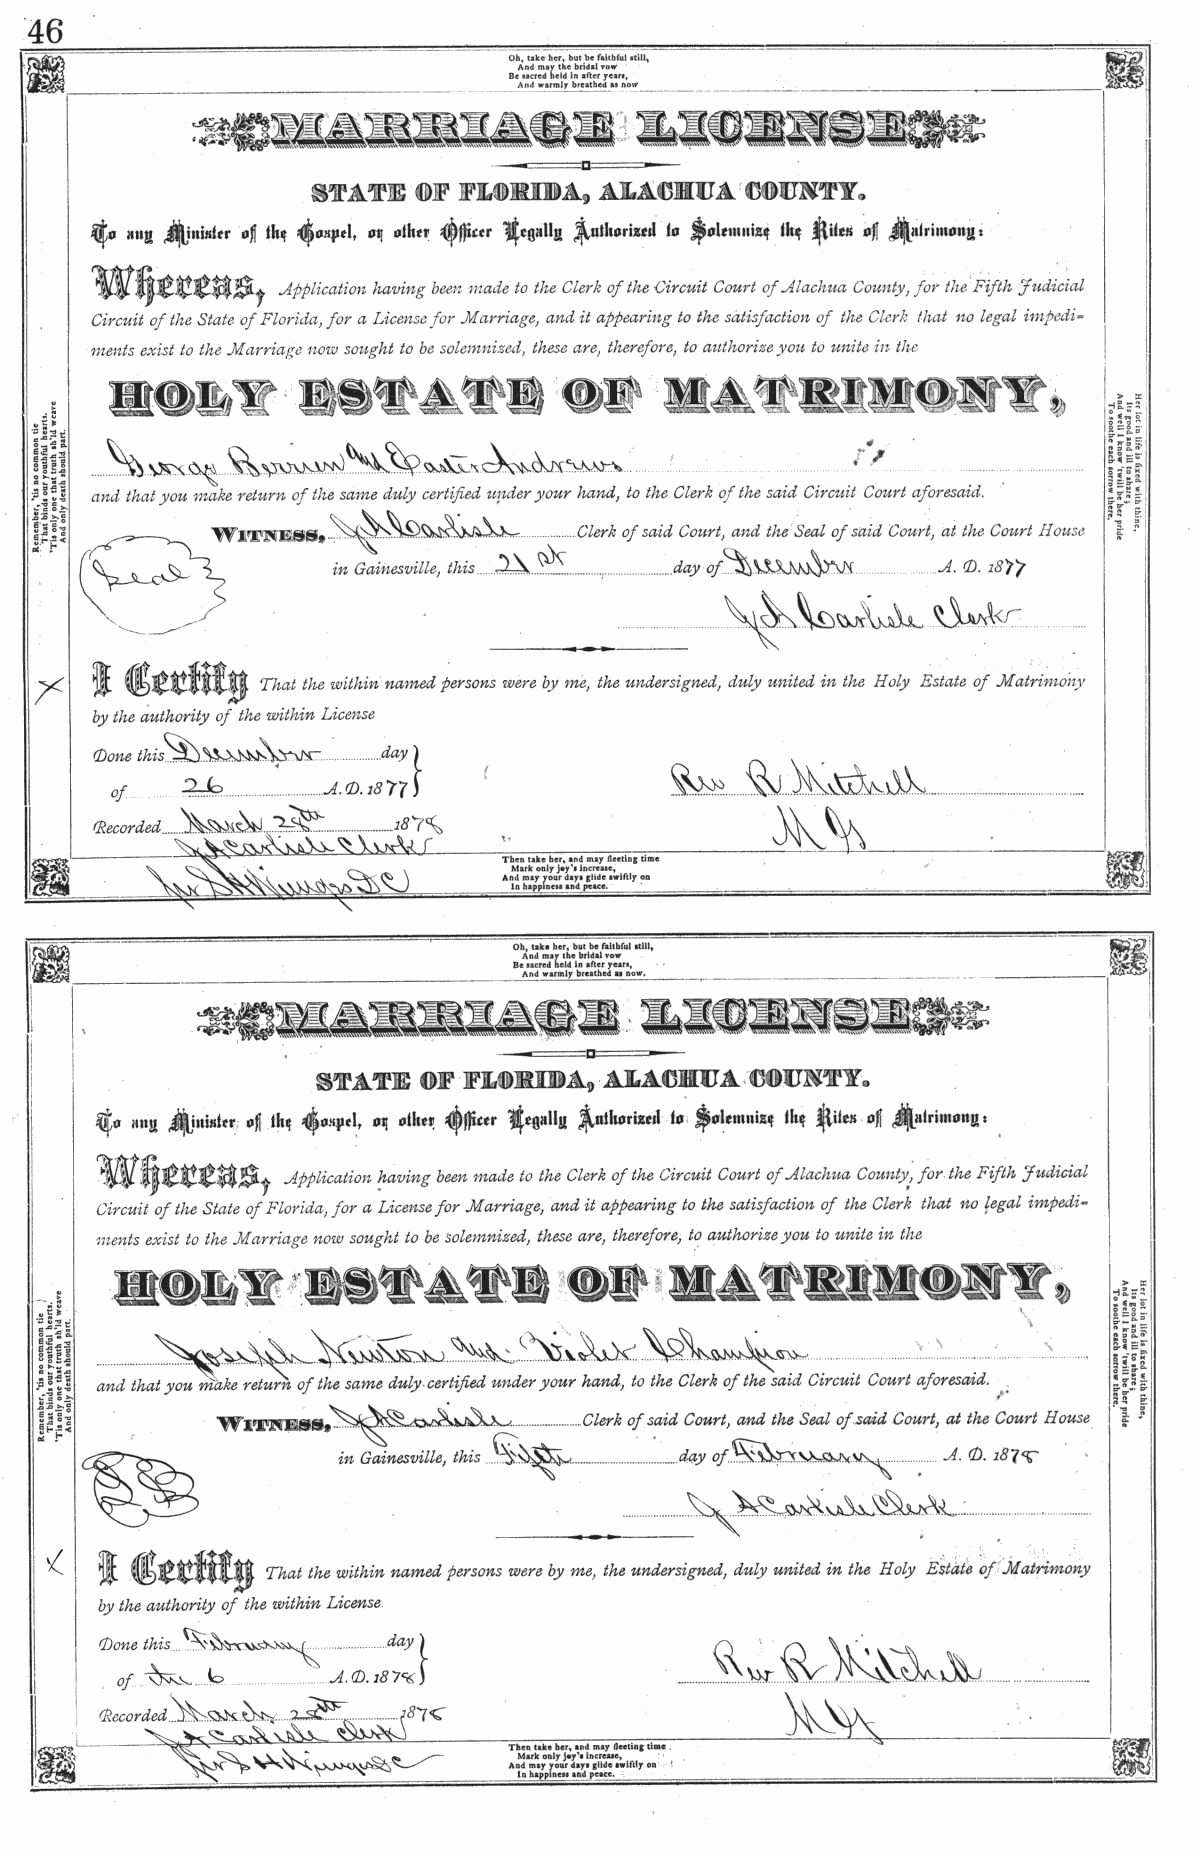 46
Oh, take her, but be faithful still,
And may the bridal vow
Be sacred held in after years,
And warmly breathed as now
MARRIAGE LICENSE
STATE OF FLORIDA, ALACHUA COUNTY.
To any Minister of the Gospel, or other Officer Legally Authorized to Solemnize the Rites of Matrimony:
Whereas, Application having been made to the Clerk of the Circuit Court of Alachua County, for the Fifth Judicial
Circuit of the State of Florida, for a License for Marriage, and it appearing to the satisfaction of the Clerk that no legal impedi-
ments exist to the Marriage now sought to be solemnized, these are, therefore, to authorize you to unite in the
HOLY ESTATE OF MATRIMONY,
George Berrien and Easter Andrews
and that you make return of the same duly certified under your hand, to the Clerk of the said Circuit Court aforesaid.
WITNESS, J A Carlisle Clerk of said Court, and the Seal of said Court, at the Court House
Seal
in Gainesville, this 21st day of December A. D. 1877
J A Carlisle Clerk
X
I Certify That the within named persons were by me, the undersigned, duly united in the Holy Estate of Matrimony
by the authority of the within License
Done this December day
of 26 A. D. 1877
Rev R Mitchell
M G
Recorded March 28th 1878
J A Carlisle Clerk
Remember, 'tis no common tie
That binds our youthful hearts,
'Tis only one that truth sh'ld weave
And only death should part.
Her lot in life is fixed with thine,
Its good and ill to share;
And well I know 'twill be her pride
To soothe each sorrow there.
Then take her, and may fleeting time
Mark only joy's increase,
And may your days glide swiftly on
In happiness and peace.
Oh, take her, but be faithful still,
And may the bridal vow
Be sacred held in after years,
And warmly breathed as now.
MARRIAGE LICENSE
STATE OF FLORIDA, ALACHUA COUNTY.
To any Minister of the Gospel, or other Officer Legally Authorized to Solemnize the Rites of Matrimony:
Whereas, Application having been made to the Clerk of the Circuit Court of Alachua County, for the Fifth Judicial
Circuit of the State of Florida, for a License for Marriage, and it appearing to the satisfaction of the Clerk that no legal impedi-
ments exist to the Marriage now sought to be solemnized, these are, therefore, to authorize you to unite in the
HOLY ESTATE OF MATRIMONY,
Joseph Newton and Violet Champion
and that you make return of the same duly certified under your hand, to the Clerk of the said Circuit Court aforesaid.
WITNESS, J A Carlisle Clerk of said Court, and the Seal of said Court, at the Court House
in Gainesville, this Fifth day of February A. D. 1878
J A Carlisle Clerk
X
I Certify That the within named persons were by me, the undersigned, duly united in the Holy Estate of Matrimony
by the authority of the within License
Done this February day
of the 6 A. D. 1878
Rev R Mitchell
M G
Recorded March 28th 1878
J A Carlisle Clerk
Remember, 'tis no common tie
That binds our youthful hearts.
'Tis only one that truth sh'ld weave
And only death should part.
Her lot in life is fixed with thine,
Its good and ill to share;
And well I know 'twill be her pride
To soothe each sorrow there.
Then take her, and may fleeting time
Mark only joy's increase,
And may your days glide swiftly on
In happiness and peace.